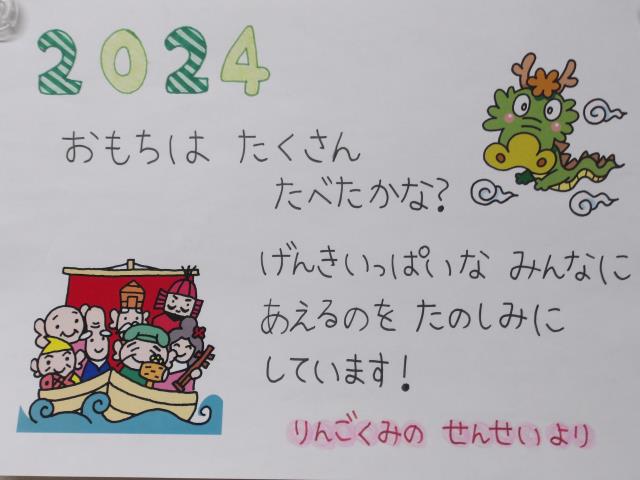 2024
おもちは たくさん
たべたかな?
げんきいっぱいな みんなに
あえるのを たのしみに
しています!
りんごくみの せんせいより